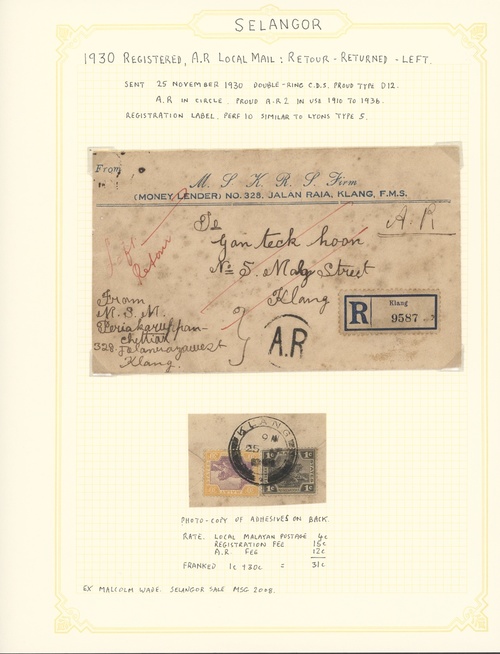 SELANGOR
1930 REGISTERED, A.R LOCAL MAIL: RETOUR-RETURNED-LEFT.
SENT 25 NOVEMBER 1930 DOUBLE-RING C.D.S. PROUD TYPE D12.
A.R IN CIRCLE. PROUD A.R.2 IN USE 1910 TO 1936.
REGISTRATION LABEL. PERF 10 SIMILAR TO LYONS TYPE 5.
From
M. S. K. R. S. Firm
(MONEY LENDER) NO. 328, JALAN RAIA, KLANG, F.M.S.
A.R
To
Gan teck hoon
No 5. Malay Street
Klang
Left
Retour
From
M. S. M.
Periakaruppan
chettiar
328
Klang.
A.R
R
Klang
9587
KLANG
9 AM
25
1c
1c
PHOTO-COPY OF ADHESIVES ON BACK.
RATE. LOCAL MALAYAN POSTAGE 4c
REGISTRATION FEE 15c
A.R FEE 12c
31c
FRANKED 1c + 30c =
EX MALCOLM WADE. SELANGOR SALE MSG 2008.